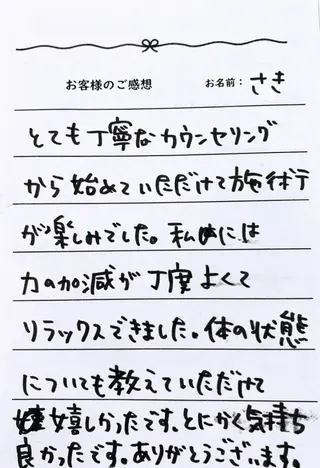 お客様のご感想 お名前: さき
とても丁寧なカウンセリング
から始めていただけて施術
が楽しみでした。私には
力の加減が丁度よくて
リラックスできました。体の状態
についても教えていただけて
嬉しかったです。とにかく気持ち
良かったです。ありがとうございます。